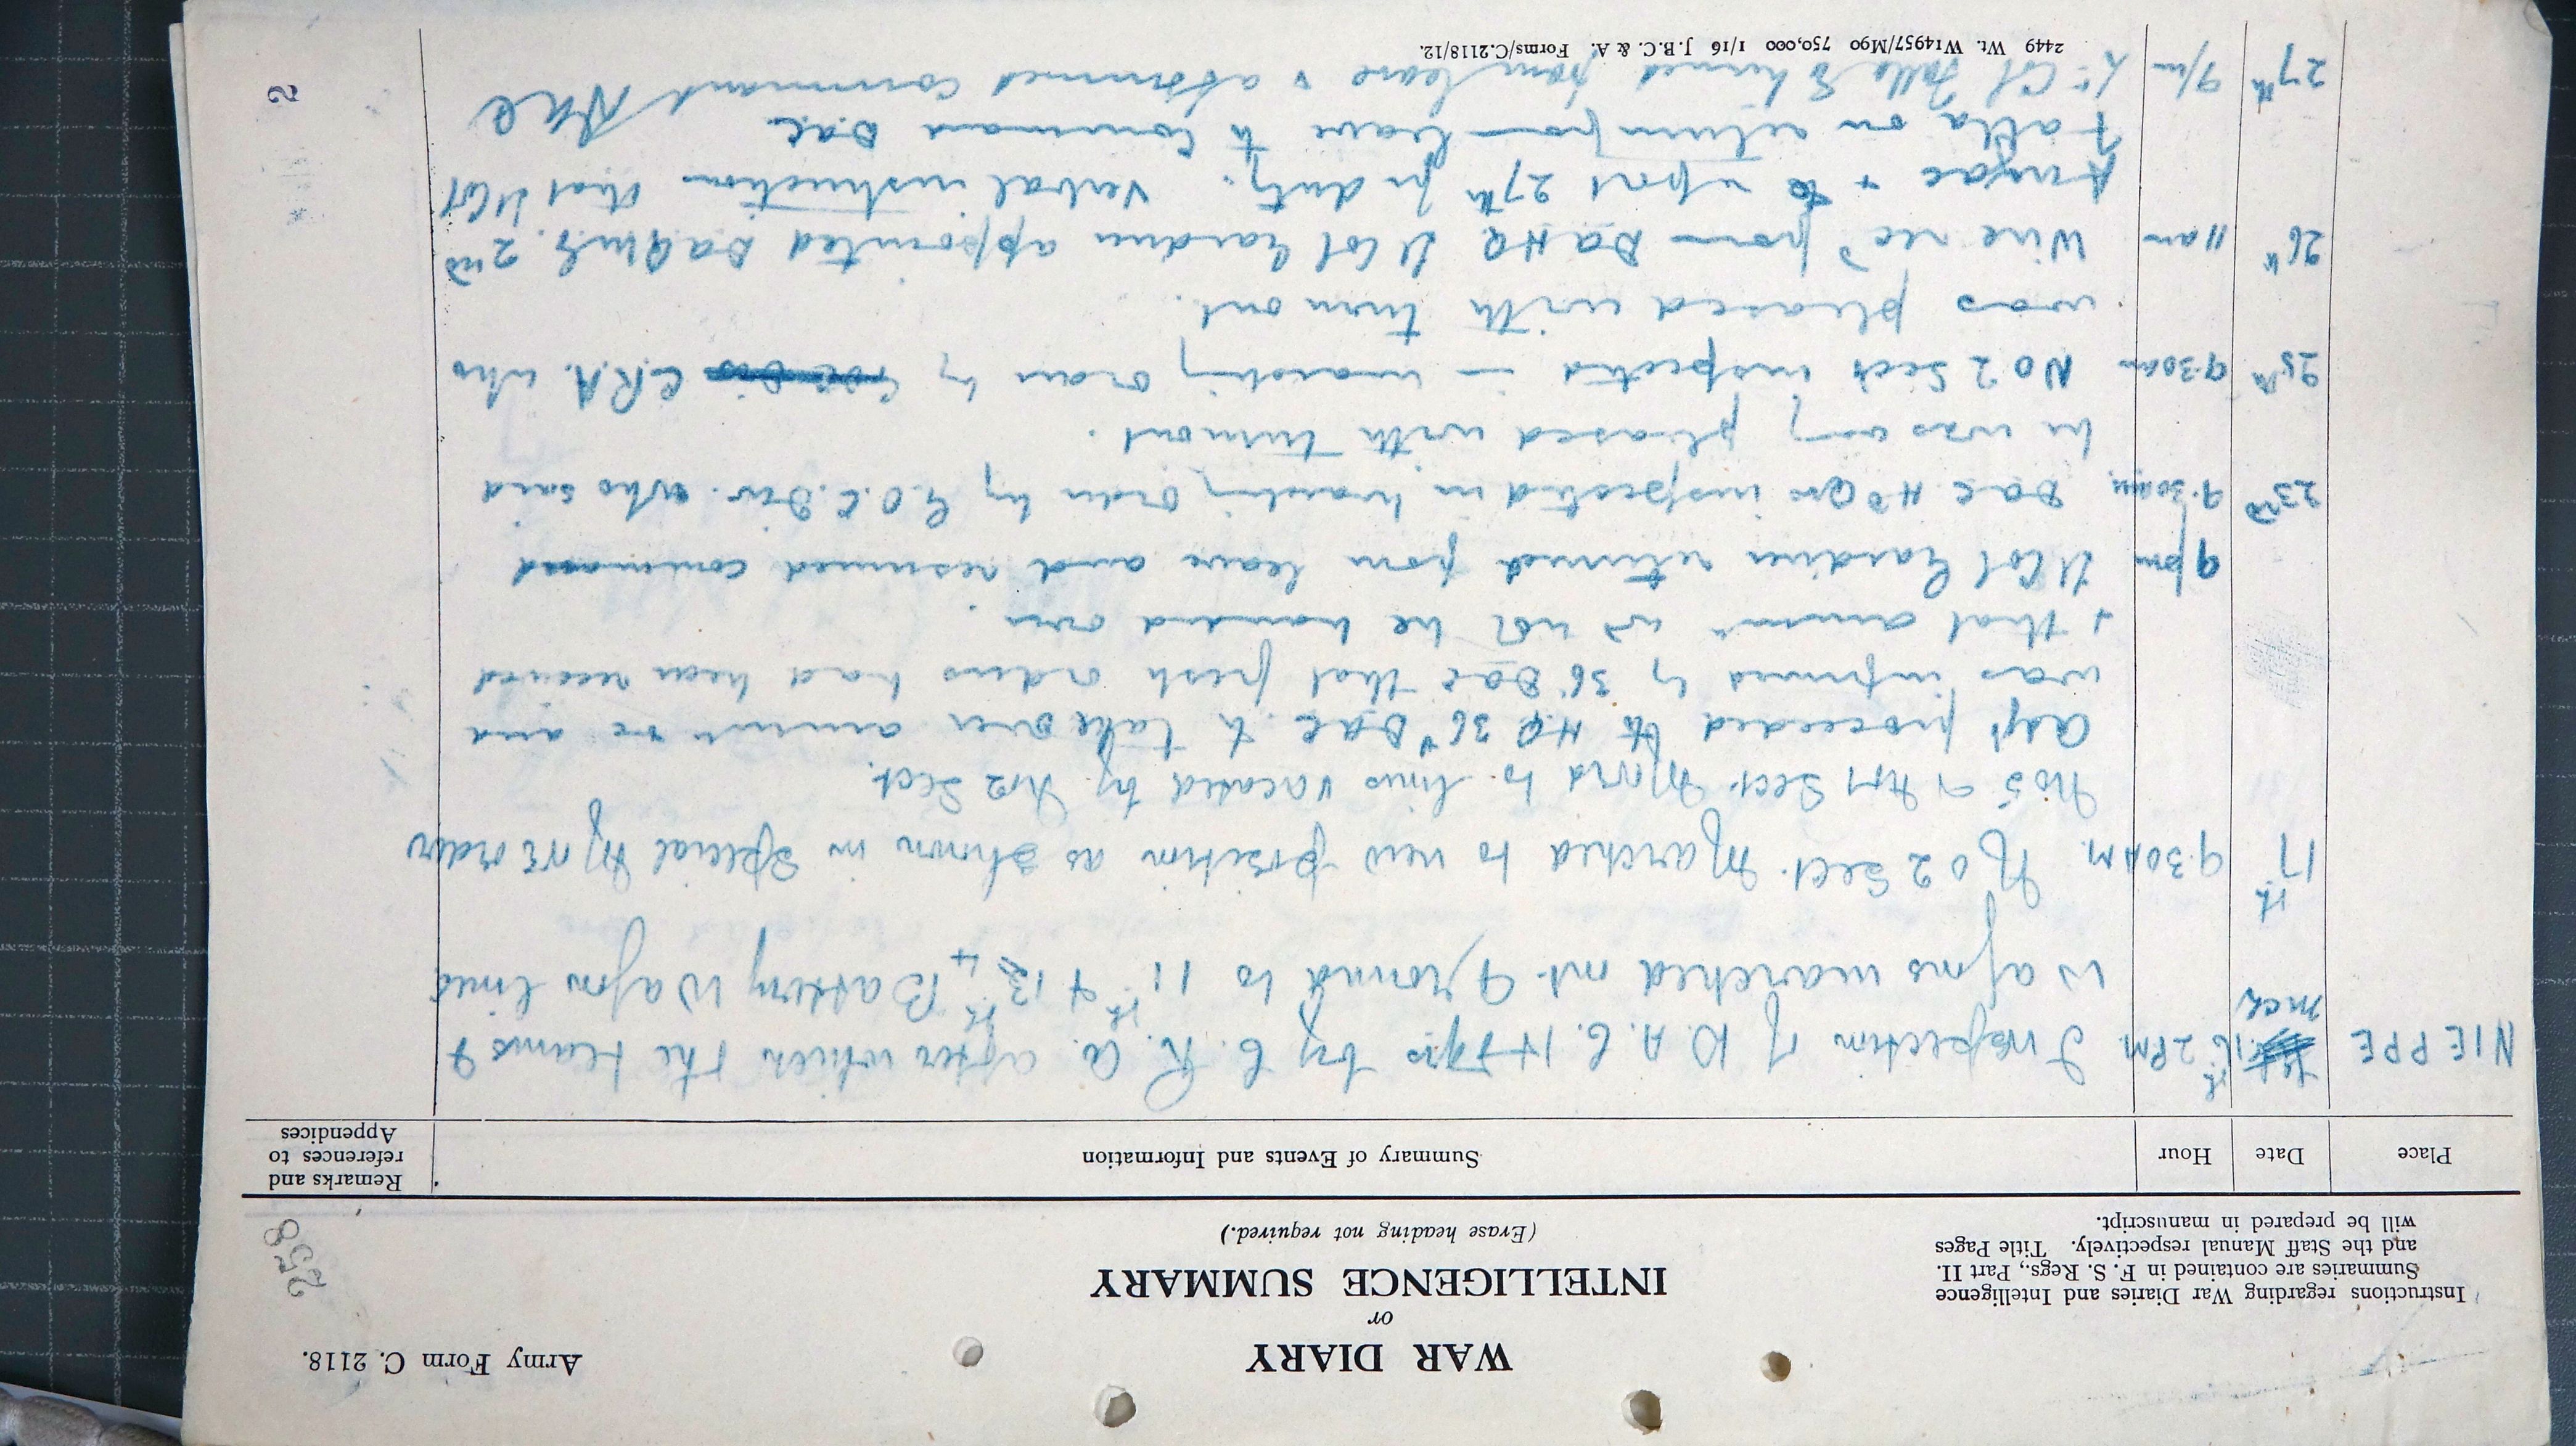 Army Form C. 2118.
WAR DIARY
or
INTELLIGENCE SUMMARY
(Erase heading not required.)
Instructions regarding War Diaries and Intelligence
Summaries are contained in F. S. Regs., Part II.
and the Staff Manual respectively. Title Pages
will be prepared in manuscript.
258
Place
Date
Hour
Summary of Events and Information
Remarks and
references to
Appendices
NIEPPE 16th Mch 2 PM. Inspection of D.A.C. Hdqrs by C. R. A. after which the teams &
Wagons marched out & round to 11th & 12th Battery Wagon lines
17th 9.30 AM. No 2 Sect. Marched to new position as shown in Special Move order
No 3 Sect. Moved to lines vacated by No 2 Sect.
Adjt proceeded to HQ 36th DAC to take over ammn and
was informed by 36 DAC that fresh orders had been received
+ that ammn wd not be handed over.
9 pm Lt Col Gardiner returned from leave and resumed command
23rd 9.30am. DAC Hd Qrs inspected in marching order by G.O.C. Div. who said
he was very pleased with turnout.
25th 9.30am No 2 Sect inspected in marching order by C.R.A. who
was pleased with turn out.
26th 11 am Wire recd from DAHQ Lt Col Gardiner appointed DAQMG. 2nd
Anzac + to report 27th for duty. Verbal instruction that Lt Col
Falla on return from leave to Command DAC
27th 9/m Lt Col Falla returned from leave & assumed command DAC
2449 Wt. W14957/M90 750,000 1/16 J.B.C. & A. Forms/C.2118/12.
2